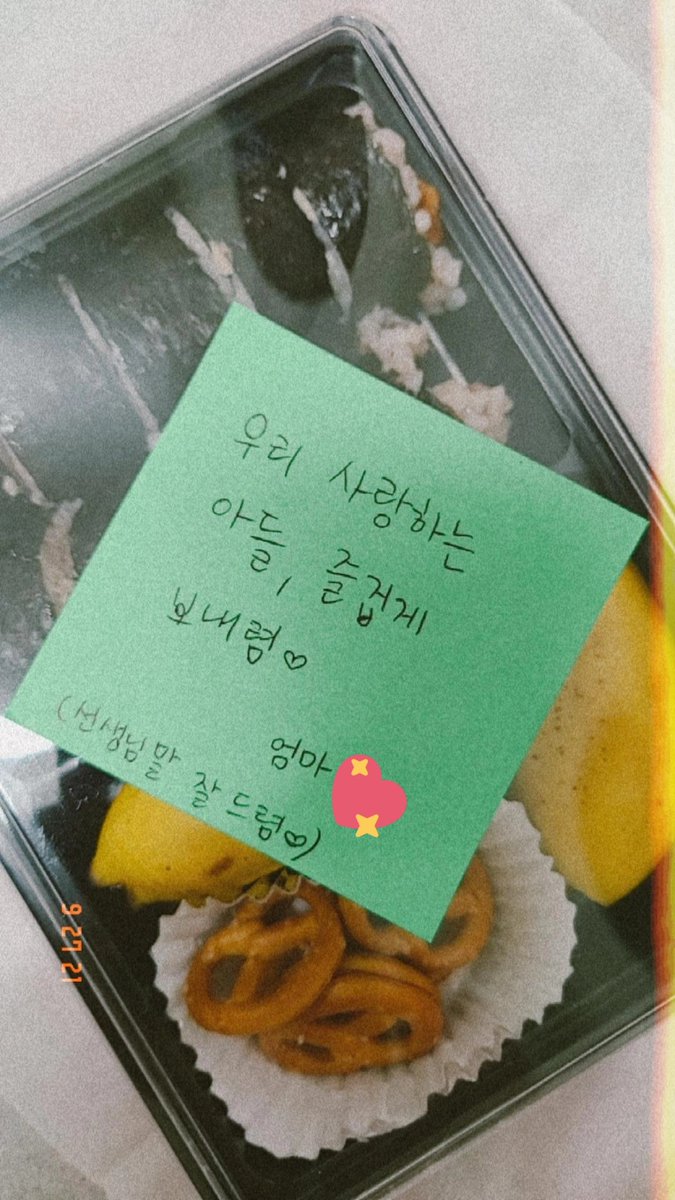 우리 사랑하는
아들, 즐겁게
보내렴♡
엄마
(선생님 말 잘 드렴♡)
9 27 21